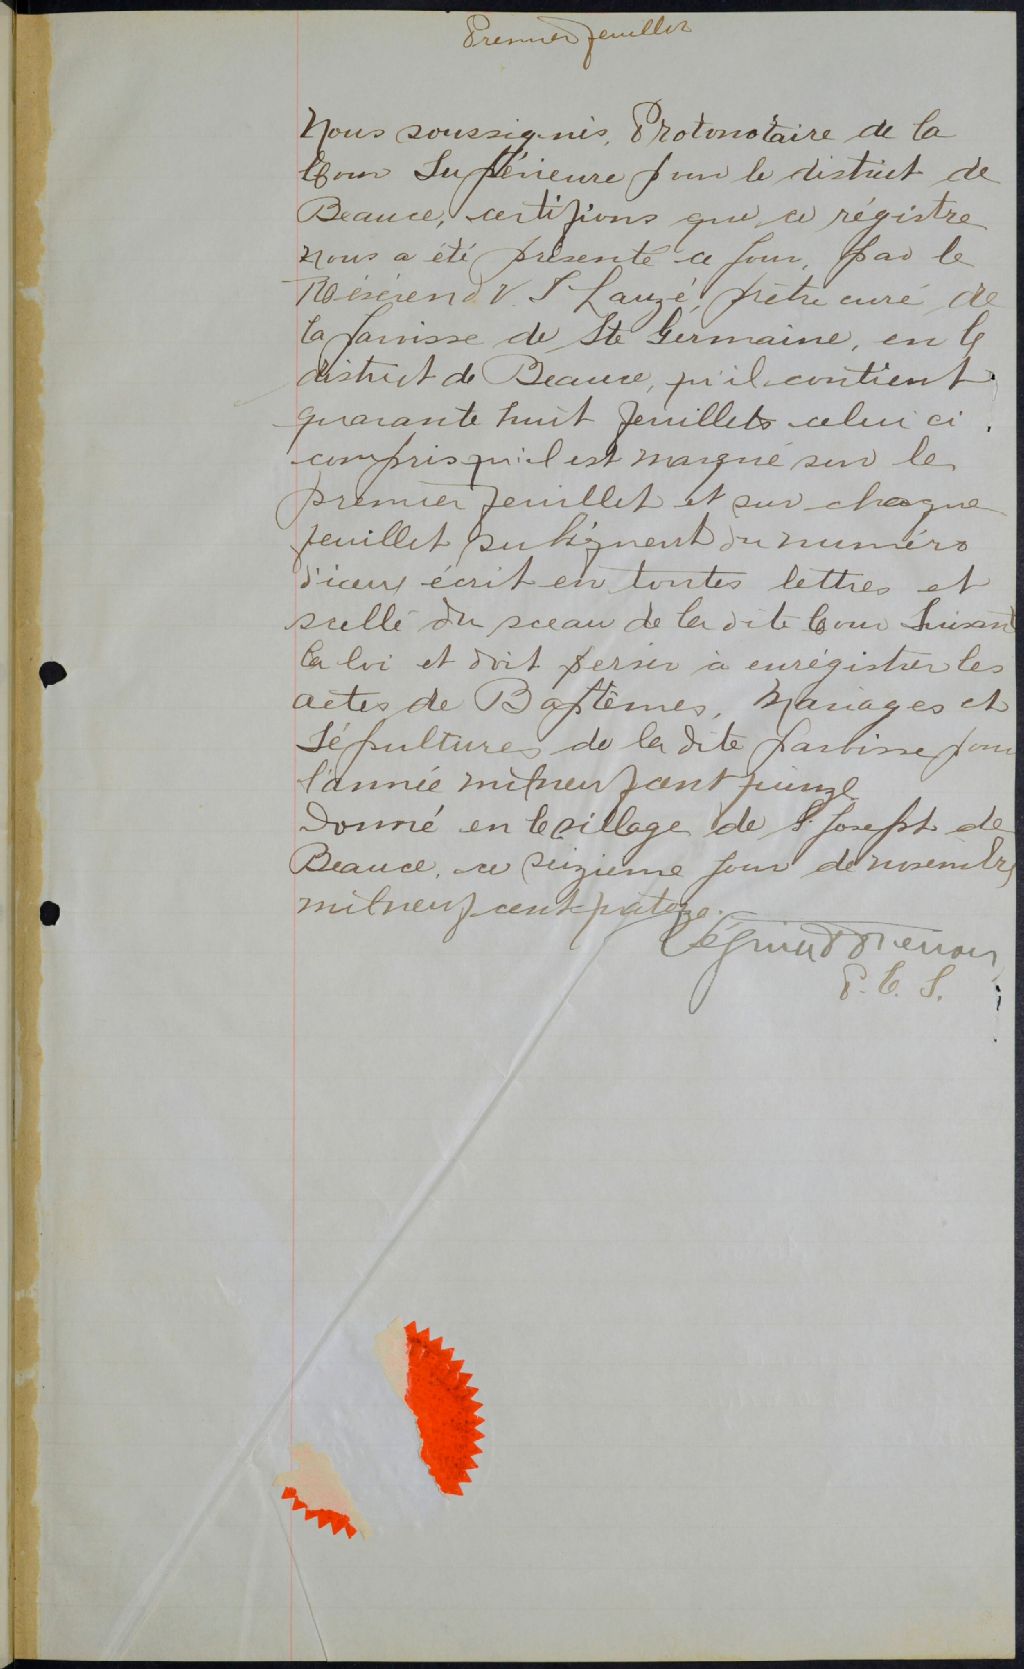 Premier feuillet
Nous soussignés, Protonotaire de la
Cour Supérieure pour le district de
Beauce, certifions que ce régistre
nous a été présenté ce jour, par le
Révérend V. J. Lauzé, prêtre curé de
la paroisse de Ste Germaine, en le
district de Beauce, qu'il contient
quarante huit feuillets celui ci
compris qu'il est marqué sur le
premier feuillet et sur chaque
feuillet subséquent du numéro
d'iceux écrit en toutes lettres et
scellé du sceau de la dite Cour Suivant
la loi et doit servir à enrégistrer les
actes de Baptêmes, Mariages et
Sépultures de la dite paroisse pour
l'année mil neuf cent quinze
Donné en le village de St Joseph de
Beauce, ce seizieme jour de novembre
mil neuf cent quatorze.
P. C. S.